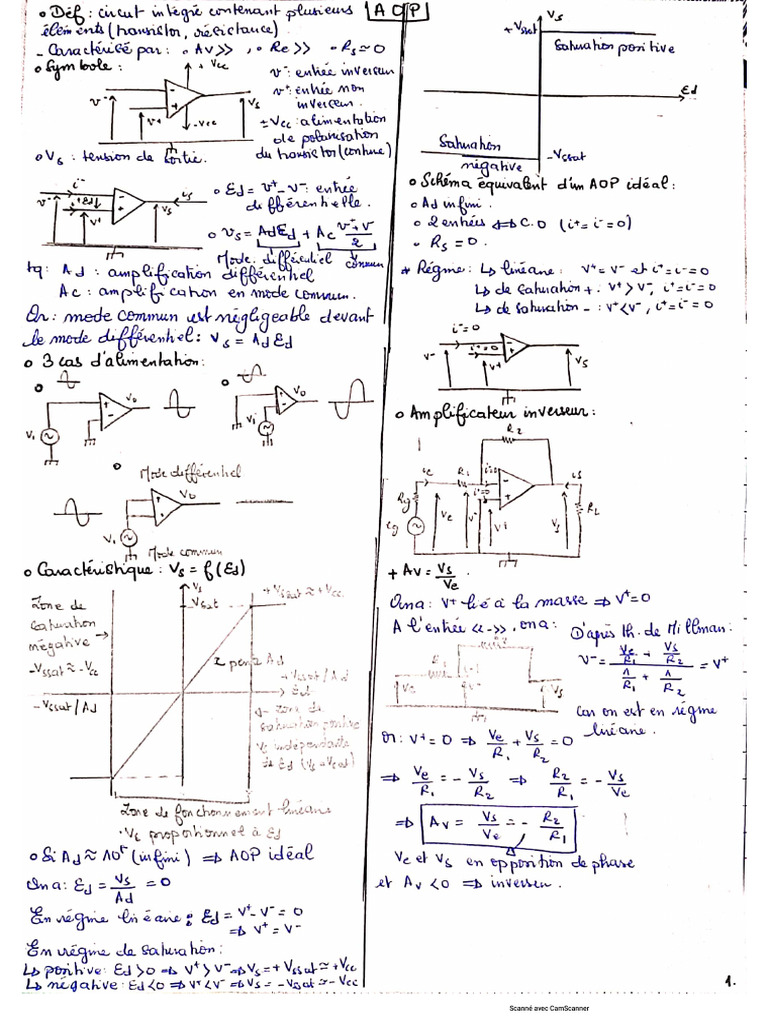 AOP
o Déf: circuit intégré contenant plusieurs
éléments (transistor, résistance)
- Caractérisé par: • Av>>, • Re>> • Rs≃0
o Symbole:
+Vcc
v⁻
v⁺
-Vcc
Vs
v⁻: entrée inverseur
v⁺: entrée non
inverseur.
±Vcc: alimentation
de polarisation
du transistor (continue)
o Vs: tension de sortie.
i⁻
v⁻
Ed
v⁺
Vs
is
o Ed = v⁺-v⁻: entrée
différentielle.
o vs = AdEd + Ac (v⁺+v⁻)/2
Mode: différentiel commun
tq: Ad: amplification différentiel
Ac: amplification en mode commun.
Or: mode commun est négligeable devant
le mode différentiel: Vs = Ad Ed
o 3 cas d'alimentation:
Vo
Vi
Vo
Vi
Mode différentiel
Vo
Vi
Mode commun
o Caractéristique: Vs = f(Ed)
Vs
+Vssat ≃ +Vcc
Vssat
Zone de
saturation
négative →
-Vssat ≃ -Vcc
-Vssat/Ad
+Vssat/Ad
Ed
Zone de
saturation positive
Vs indépendante
de Ed
Zone de fonctionnement linéaire
Vs proportionnel à Ed
o Si Ad ≈ 10⁵ (infini) ⇒ AOP idéal
Ona: Ed = Vs/Ad = 0
En régime linéaire: Ed = V⁺-V⁻ = 0
⇒ V⁺ = V⁻
En régime de saturation:
↳ positive: Ed>0 ⇒ V⁺>V⁻ ⇒ Vs=+Vssat≃+Vcc
↳ négative: Ed<0 ⇒ V⁺<V⁻ ⇒ Vs=-Vssat≃-Vcc
Vs
+Vssat
Saturation positive
Ed
Saturation
négative
-Vssat
o Schéma équivalent d'un AOP idéal:
o Ad infini.
o 2 entrées ⇔ C.O (i⁺=i⁻=0)
• Rs = 0.
* Régime: ↳ linéaire: V⁺=V⁻ et i⁺=i⁻=0
↳ de saturation +: V⁺>V⁻, i⁺=i⁻=0
↳ de saturation -: V⁺<V⁻, i⁺=i⁻=0
i⁻=0
i⁺=0
V⁻
V⁺
Vs
o Amplificateur inverseur:
R2
ie
R1
i⁻=0
is
Rg
eg
Ve
V⁻
Vs
RL
+ Av = Vs/Ve.
Ona: V⁺ lié à la masse ⇒ V⁺=0
A l'entrée <<->>, ona:
R2
R1
Ve
V⁻
Vs
D'après th. de Millman:
V⁻ = (Ve/R1 + Vs/R2)/(1/R1 + 1/R2) = V⁺
car on est en régime
linéaire.
or: V⁺=0 ⇒ Ve/R1 + Vs/R2 = 0
⇒ Ve/R1 = - Vs/R2 ⇒ R2/R1 = - Vs/Ve
⇒ Av = Vs/Ve = - R2/R1
Ve et Vs en opposition de phase
et Av <0 ⇒ inverseur.
1.
Scanné avec CamScanner